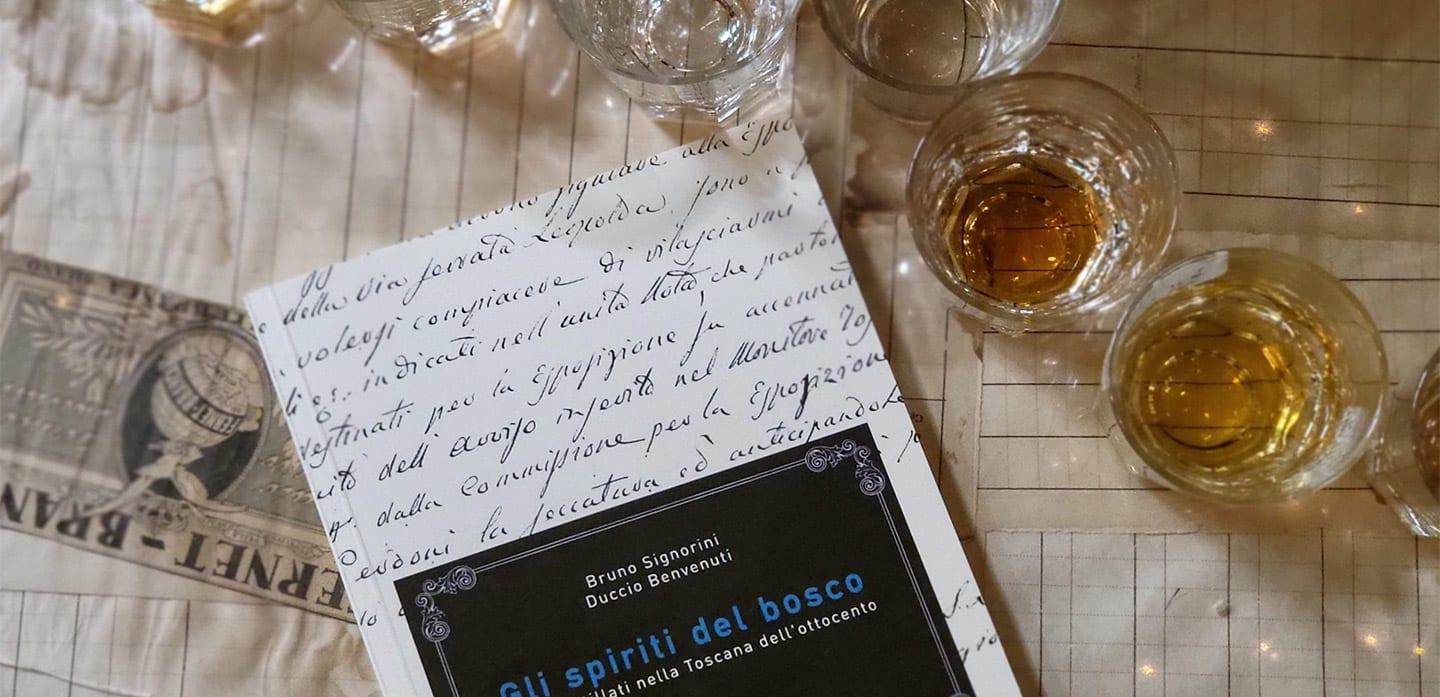 figurare alla Espo
della via ferrata Leopolda. sono a
volersi compiacere di rilasciarmi
indicati nell'unita Nota che
destinati per la Esposizione fu accennat
dell'avviso inserito nel Monitore
dalla Commissione per la Esposizione
la seccatura ed anticipandole
Bruno Signorini
Duccio Benvenuti
Gli spiriti del bosco
illati nella Toscana dell'ottocento
ERNET-BRAN